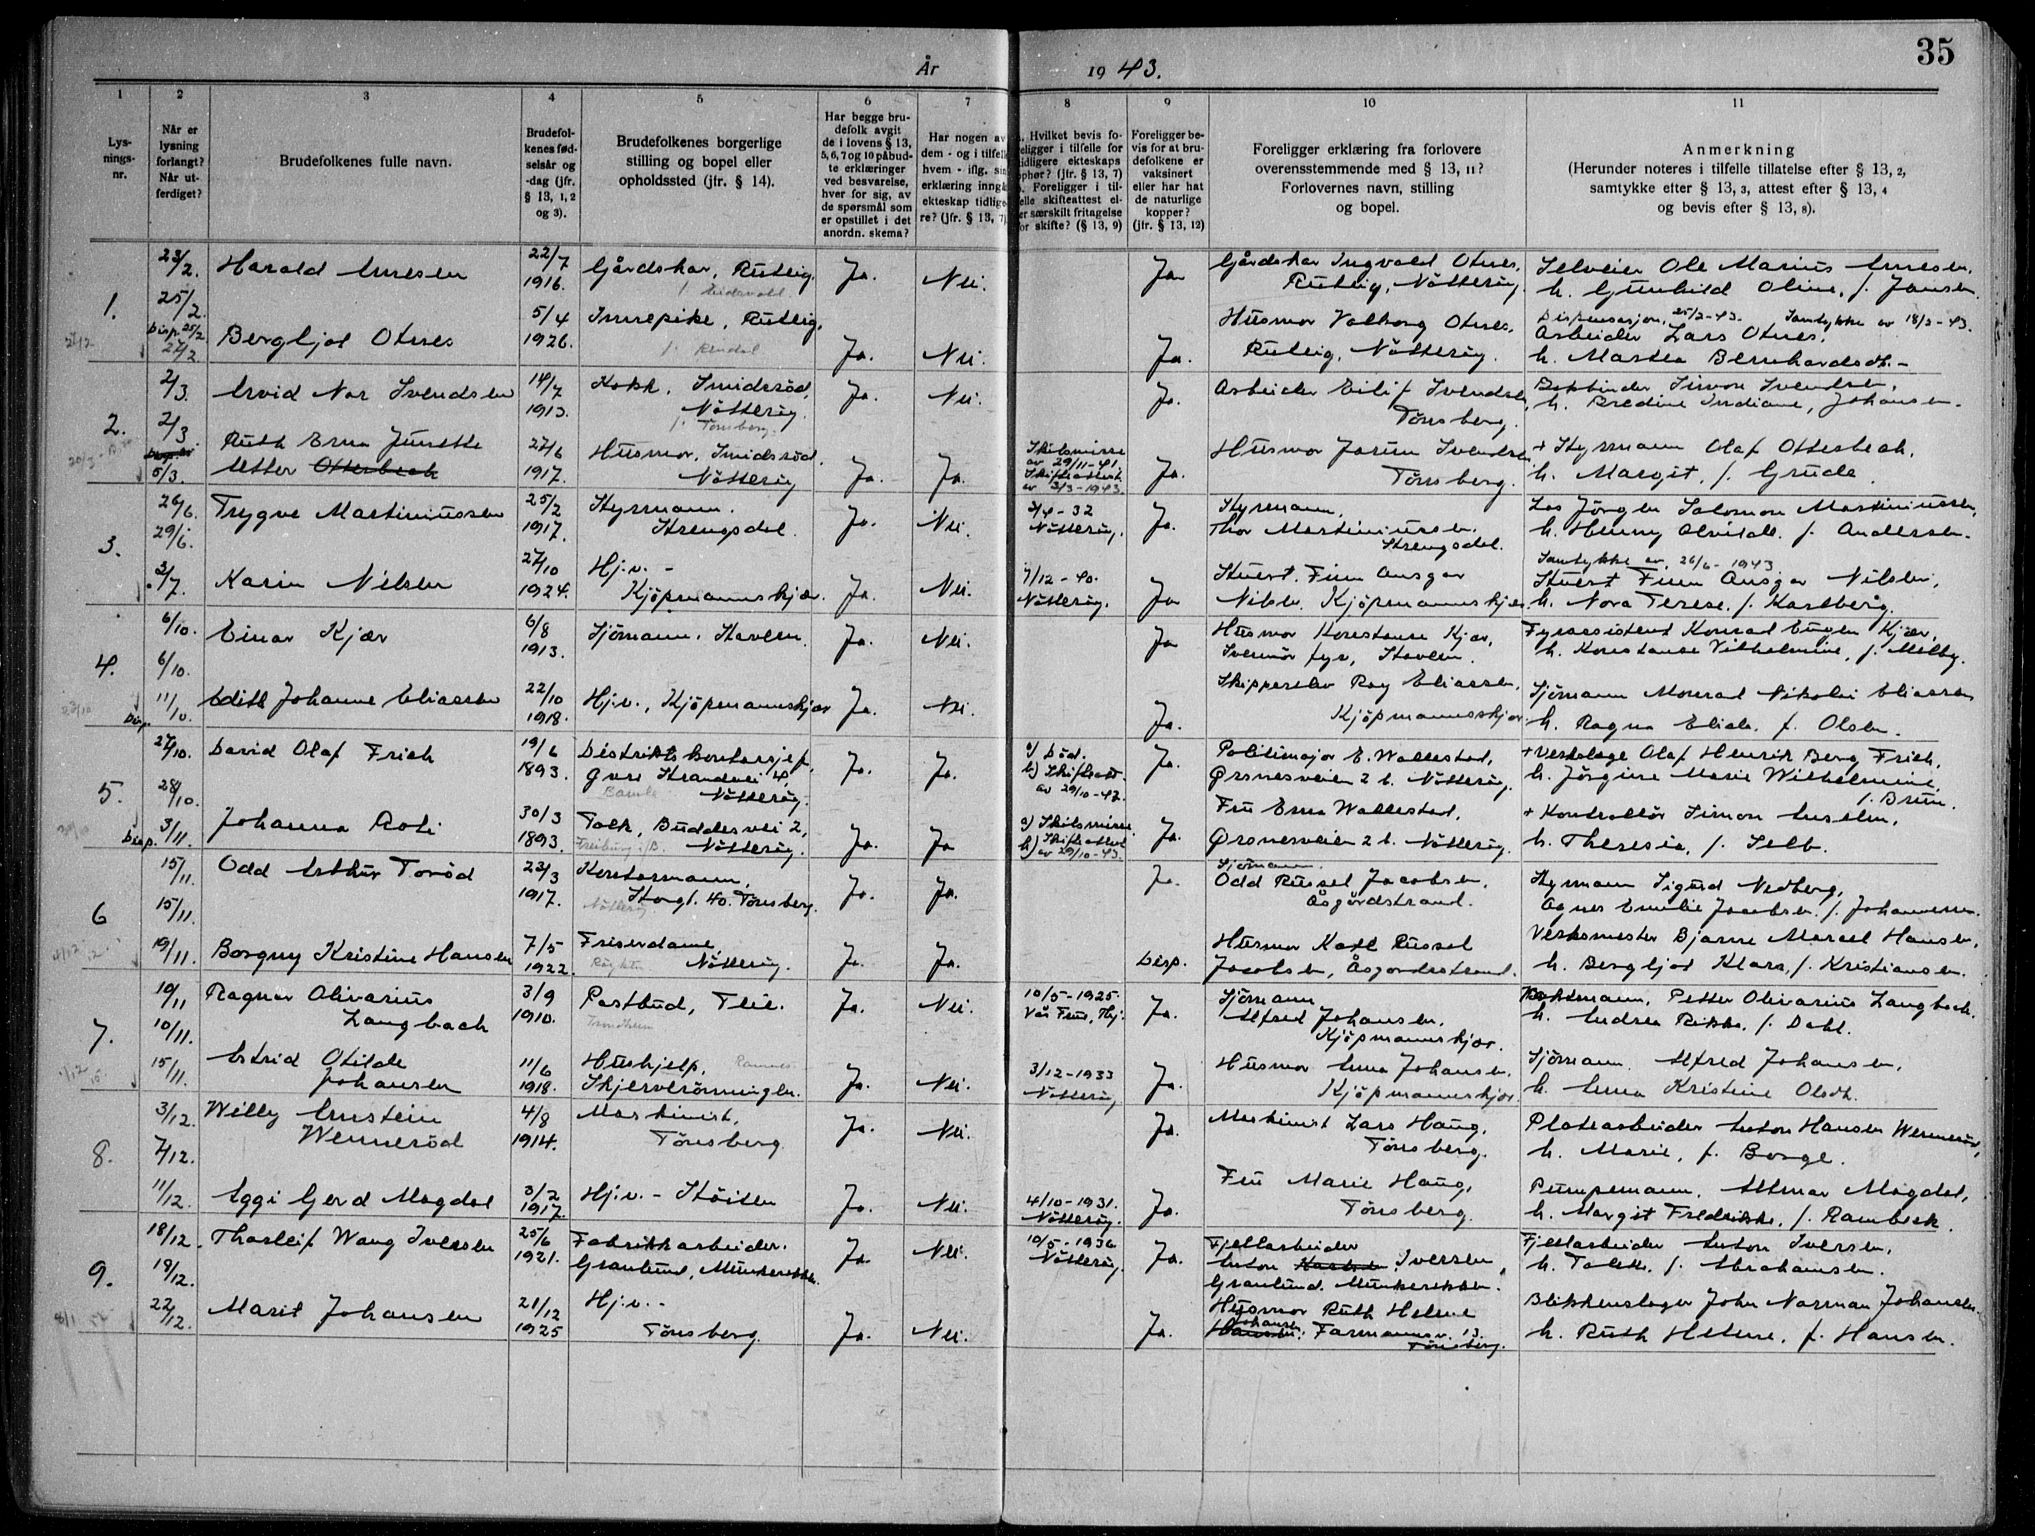 35
År 1943.
1
2
3
4
5
6
7
8
9
10
11
Lys-
nings-
nr.
Når er
lysning
forlangt?
Når ut-
ferdiget?
Brudefolkenes fulle navn.
Brudefol-
kenes fød-
selsår og
-dag (jfr.
§ 13, 1, 2
og 3).
Brudefolkenes borgerlige
stilling og bopel eller
opholdssted (jfr. § 14).
Har begge bru-
defolk avgit
de i lovens § 13,
5, 6, 7 og 10 påbud-
te erklæringer
ved besvarelse,
hver for sig, av
de spørsmål som
er opstillet i det
anordn. skema?
Har nogen av
dem - og i tilfelle
hvem - iflg. sin
erklæring inngå
ekteskap tidlige-
re? (jfr. § 13, 7)
. Hvilket bevis fo-
religger i tilfelle for
tidligere ekteskaps
ophør? (jfr. § 13, 7)
. Foreligger i til-
felle skifteattest el-
er særskilt fritagelse
for skifte? (§ 13, 9)
Foreligger be-
vis for at bru-
defolkene er
vaksinert
eller har hat
de naturlige
kopper?
(jfr. § 13, 12)
Foreligger erklæring fra forlovere
overensstemmende med § 13, 11?
Forlovernes navn, stilling
og bopel.
Anmerkning
(Herunder noteres i tilfelle tillatelse efter § 13, 2,
samtykke efter § 13, 3, attest efter § 13, 4
og bevis efter § 13, 8).
1.
23/2.
25/2.
Disp. 25/2
27/2
Harald Arnesen
22/7
1916.
Gårdskar, Rutlig.
f. Eidsvold.
Ja.
Nei.
Ja
Gårdskar Ingvald Otnes,
Rutlig, Nøtterøy.
Selveier Ole Marius Arnesen,
h. Gunhild Oline, f. Jansen
Bergljot Otnes
5/4
1926.
Innepike, Rutlig.
f. Rendal
Ja.
Nei.
Ja.
Husmor Valborg Otnes,
Rutlig, Nøtterøy.
Dispensasjon, 25/2-43. Samtykke av 18/2-43.
Arbeider Lars Otnes,
h. Martea Bernhardsdt. -
2.
2/3.
2/3
5/3.
Arvid Nor Svendsen
14/7
1913.
Kokk, Smidsrød,
Nøtterøy.
f. Tønsberg.
Ja.
Nei.
Ja.
Arbeider Eilif Svendsen,
Tønsberg.
Bokbinder Simon Svendsen,
h. Bredine Indiane, Johansen.
Ruth Erna Junette
Utter Otterbech
27/6
1917.
Husmor, Smidsrød.
Nøtterøy
Ja.
Ja.
Skilsmisse
av 29/11-41.
Skifteattest
av 3/3-1943.
Ja.
Husmor Jorun Svendsen
Tønsberg.
+ Styrmann Olaf Otterbech,
h. Margit, f. Grude
3.
26/6.
29/6.
3/7.
Trygve Martiniussen
25/2
1917.
Styrmann.
Strengsdal.
Ja.
Nei.
3/4-32
Nøtterøy.
Ja.
Styrmann,
Thor Martiniussen.
Strengsdal.
Los Jørgen Salomon Martiniussen,
h. Henny Alvilde. f. Andersen.
Karin Nilsen
27/10
1924.
Hj.v. -
Kjøpmannskjær.
Ja.
Nei.
7/12-40.
Nøtterøy.
Ja
Stuert. Finn Ansgar
Nilsen. Kjøpmannskjær
Samtykke av. 26/6-1943
Stuert Finn Ansgar Nilsen,
h. Nora Terese. f. Karlberg.
4.
6/10.
6/10.
11/10.
Disp.
Einar Kjær
6/8
1913.
Sjømann, Stavern.
Ja.
Nei.
Ja
Husmor Konstanse Kjær,
Svenner fyr, Stavern.
Fyrassistent Konrad Eugen Kjær,
h. Konstanse Vilhelmine, f. Melby.
Edith Johanne Eliassen
22/10
1918.
Hj.v., Kjøpmannskjær
Ja.
Nei.
Ja.
Skipperelev Roy Eliassen,
Kjøpmannsskjær.
Sjømann Monrad Nikolai Eliassen
h. Ragna Elida. f. Olsen.
5.
27/10.
28/10.
3/11.
Disp.
David Olaf Frich
19/6
1893.
Distriktskontorsjef,
Øvre Strandvei 4,
Nøtterøy.
Bamle
Ja.
Ja.
a) Død.
b) Skifteatt.
av 29/10-43.
Ja.
Politimajor E. Wallestad,
Ørsnesveien 2 b. Nøtterøy.
+ Verkslege Olaf Henrik Berg Frich,
h. Jørgine Marie Wilhelmine,
f. Bruun.
Johanna Roti
30/3
1893.
Tolk, Buddesvei 2,
Freiburg i/B. Nøtterøy.
Ja.
Ja
a) Skilsmisse.
b) Skifteattest
av 29/10-43.
Ja.
Fru Erna Wallestad,
Ørsnesveien 2 b. Nøtterøy.
+ Kontrollør Simon Anselm,
h. Theresia, f. Selb.
6
15/11.
15/11.
19/11.
Odd Arthur Torød
23/3
1917.
Kontormann,
Storgt. 40. Tønsberg.
Nøtterøy
Ja.
Ja.
Ja.
Sjømann
Odd Russel Jacobsen,
Åsgårdstrand.
Styrmann Sigurd Nedberg,
Agnes Emilie Jacobsen. f. Johannessen.
Borgny Kristine Hansen
7/5
1922.
Friserdame,
Nøtterøy.
Røyken
Ja.
Ja.
Disp.
Husmor Kate Russel
Jacobsen, Åsgårdsstrand.
Verksmester Bjarne Marcel Hansen,
h. Bergljot Klara, f. Kristiansen.
7.
10/11
10/11.
15/11.
Ragnar Olivarius
Langbach
3/9
1910.
Postbud, Teie.
Trondheim
Ja.
Nei.
10/5-1925.
Vår Frue, Thj.
Ja.
Sjømann
Alfred Johansen,
Kjøpmannskjær.
Petter Olivarius Langbach.
h. Andrea Rikke. f. Dahl.
Astrid Otilde
Johansen
11/6
1918.
Hushjelp, Ramnes.
Skjerverønningen.
Ja.
Nei.
3/12-1933
Nøtterøy
Ja.
Husmor Anna Johansen,
Kjøpmannskjær
Sjømann. Alfred Johansen,
h. Anna Kristine Olsdt.
8.
3/12.
7/12.
11/12.
Willy Arnstein
Wennerød
4/8
1914.
Maskinist,
Tønsberg.
Ja.
Nei.
Ja.
Maskinist Lars Haug,
Tønsberg.
Platearbeider Anton Hansen Wennerød,
h. Marie, f. Borge.
Aggi Gerd Magdal
3/2
1917.
Hj.v. - Støiten
Ja.
Nei.
4/10-1931.
Nøtterøy.
Ja.
Fru Marie Haug,
Tønsberg.
Pumpemann. Altmar Magdal,
h. Margit Fredrikke, f. Rambeck.
9.
18/12.
18/12.
22/12.
Thorleif Wang Iversen
25/6
1921.
Fabrikkarbeider.
Granlund, Munkerekka.
Ja.
Nei.
10/5-1936
Nøtterøy.
Ja.
Fjellarbeider
Anton Iversen,
Granlund. Munkerekken.
Fjellarbeider Anton Iversen,
h. Tolette. f. Abrahamsen.
Marit Johansen
21/12
1925
Hj.v. -
Tønsberg.
Ja.
Nei.
Ja.
Husmor Ruth Helene
Johansen
Hansen, Farmannsv. 13.
Tønsberg.
Blikkenslager John Norman Johansen
h. Ruth Helene, f. Hansen.